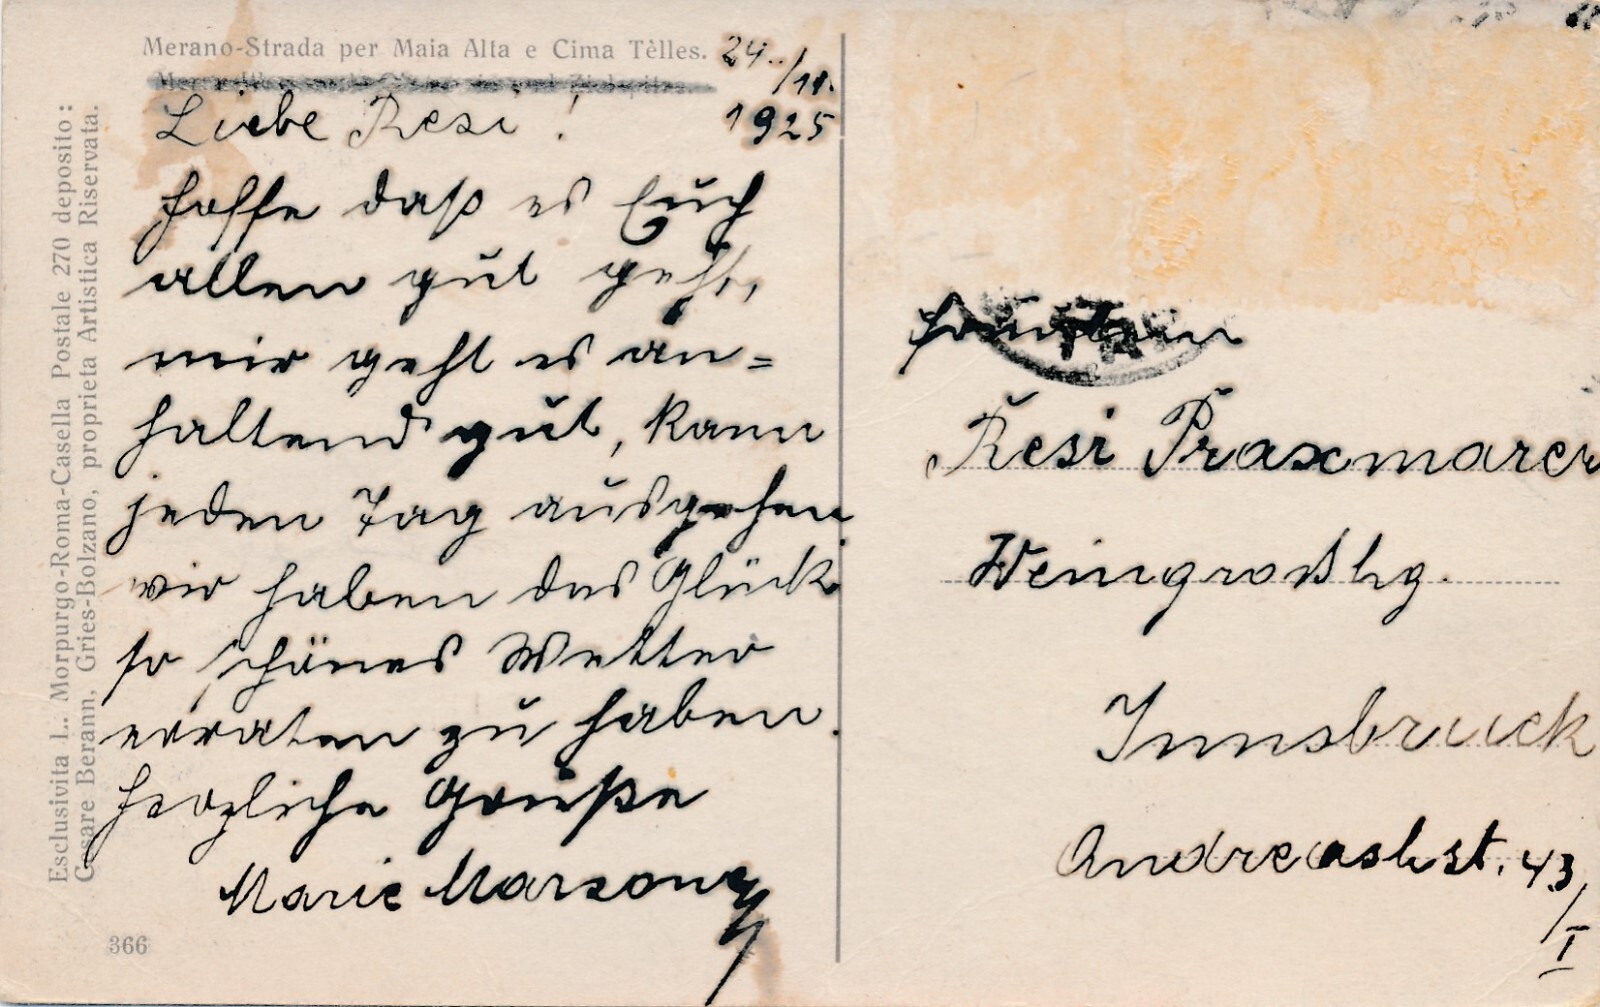 Merano-Strada per Maia Alta e Cima Tèlles.
24./11.
1925
Liebe Resi!
hoffe daß es Euch
allen gut geht,
mir geht es an=
haltend gut, kann
jeden Tag ausgehen
wir haben das Glück
so schönes Wetter
erraten zu haben.
herzliche Grüße
Marie
366
Esclusivita L. Morpurgo-Roma-Casella Postale 270 deposito:
Cesare Berann, Gries-Bolzano, proprieta Artistica Riservata.
Resi Praxmarer
Weingroßhg.
Innsbruck
Andreashst. 43/I